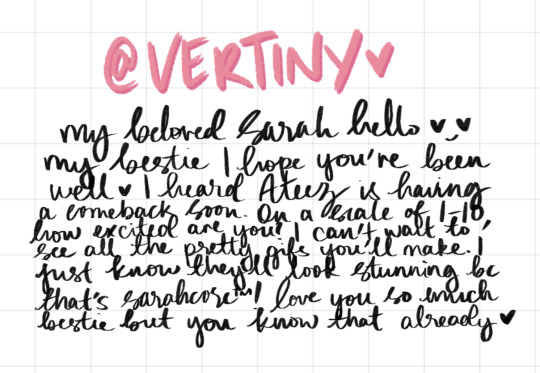 @VERTINY♥
my beloved sarah hello ♥‿♥
my bestie I hope you're been
well♥ I heard Ateez is having
a comeback soon. On a scale of 1-18,
how excited are you? I can't wait to
see all the pretty gifs you'll make. I
just know they'll look stunning bc
that's sarahcore™! love you so much
bestie but you know that already♥